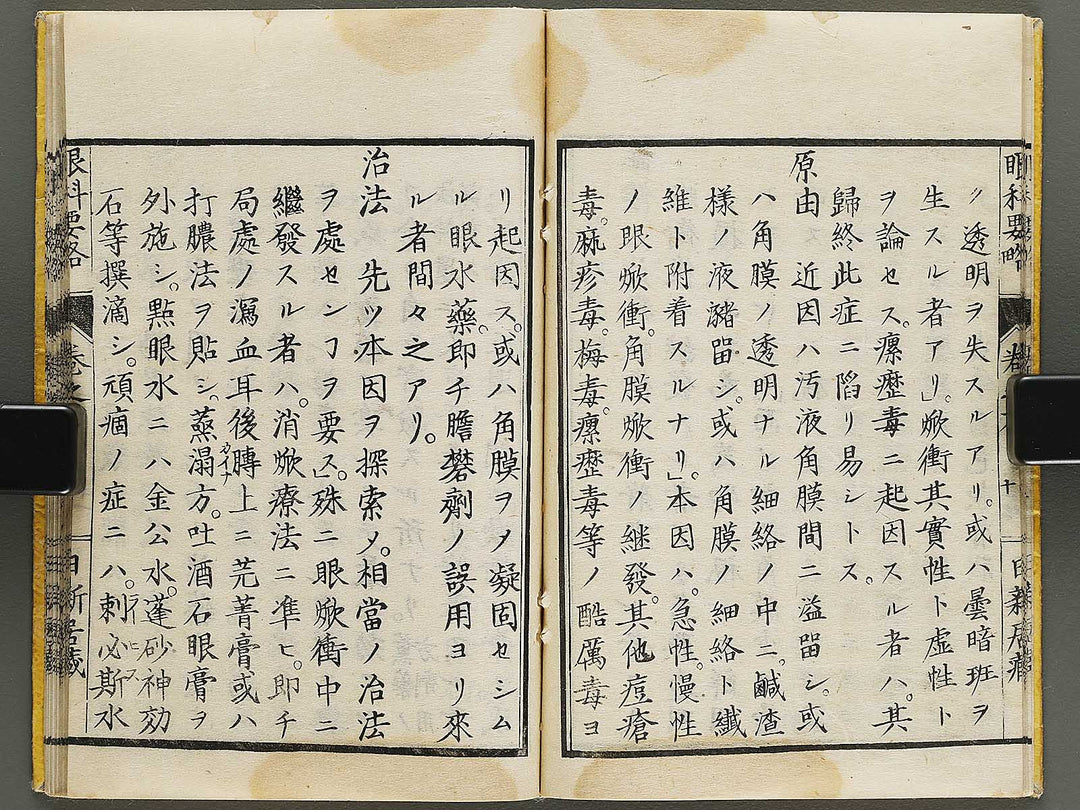 眼科要略
ツ透明ヲ失スルアリ。或ハ曇暗班ヲ
生スル者アリ」焮衝其實性ト虚性ト
ヲ論セス。瘰癧毒ニ起因スル者ハ。其
歸終此症ニ陷リ易シトス。
原由 近因ハ汚液角膜間ニ溢畱シ。或
ハ角膜ノ透明ナル細絡ノ中ニ。鹹渣
樣ノ液瀦畱シ。或ハ角膜ノ細絡ト纎
維ト附着スルナリ」本因ハ。急性。慢性
ノ眼焮衝。角膜焮衝ノ継發。其他痘瘡
毒。麻疹毒。梅毒。瘰癧毒等ノ酷厲毒ヨ
リ起因ス。或ハ角膜ヲメ凝固セシム
ル眼水藥。即チ膽礬劑ノ誤用ヨリ來
ル者間々之アリ。
治法 先ツ本因ヲ探索メ。相當ノ治法
ヲ處センヿヲ要ス」殊ニ眼焮衝中ニ
繼發スル者ハ。消焮療法ニ準ヒ。即チ
局處ノ瀉血耳後膊上ニ芫菁膏或ハ
打膿法ヲ貼シ。蒸溻方。吐酒石眼膏ヲ
外施シ。點眼水ニハ金公水。蓬砂神効
石等撰滴シ。頑痼ノ症ニハ。刺必斯水
眼科要略
日新居蔵